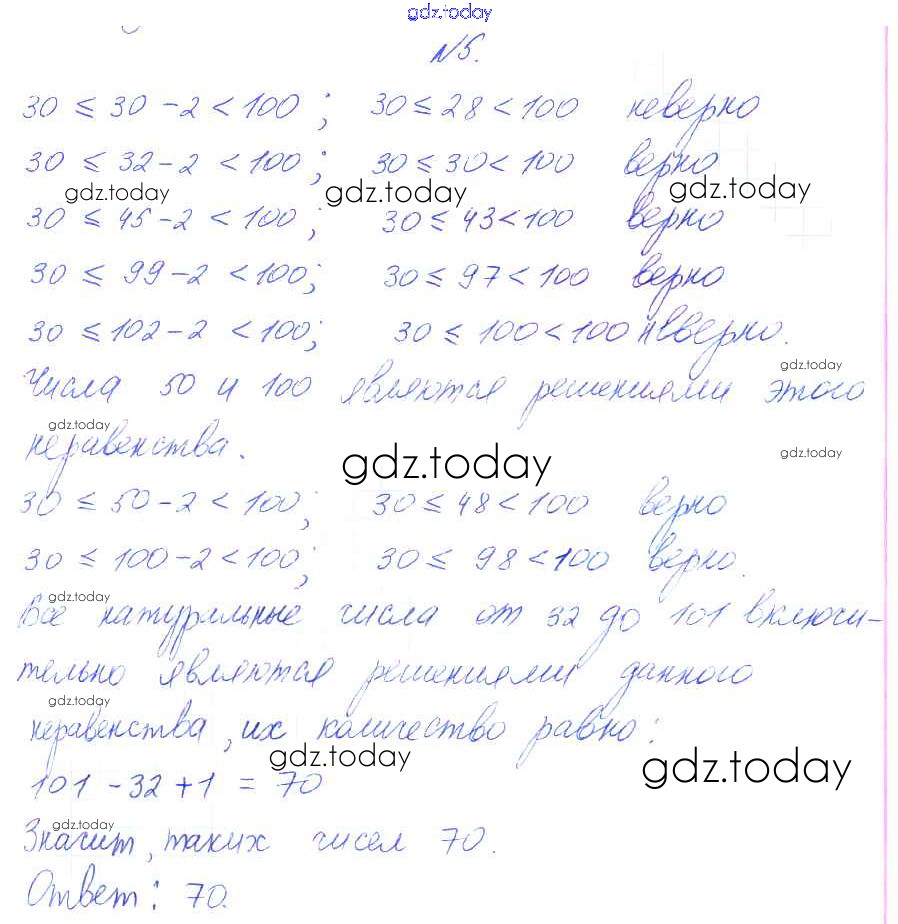 gdz.today
№5.
30 ≤ 30 - 2 < 100 ; 30 ≤ 28 < 100 неверно
30 ≤ 32 - 2 < 100 ; 30 ≤ 30 < 100 верно
gdz.today gdz.today gdz.today
30 ≤ 45 - 2 < 100 ; 30 ≤ 43 < 100 верно
30 ≤ 99 - 2 < 100; 30 ≤ 97 < 100 верно
30 ≤ 102 - 2 < 100; 30 ≤ 100 < 100 неверно.
gdz.today
Числа 50 и 100 являются решениями этого
gdz.today
неравенства.
gdz.today gdz.today
30 ≤ 50 - 2 < 100; 30 ≤ 48 < 100 верно
30 ≤ 100 - 2 < 100; 30 ≤ 98 < 100 верно.
gdz.today
Все натуральные числа от 32 до 101 включи-
тельно являются решениями данного
gdz.today
неравенства, их количество равно:
gdz.today gdz.today
101 - 32 + 1 = 70
gdz.today
Значит, таких чисел 70.
Ответ: 70.